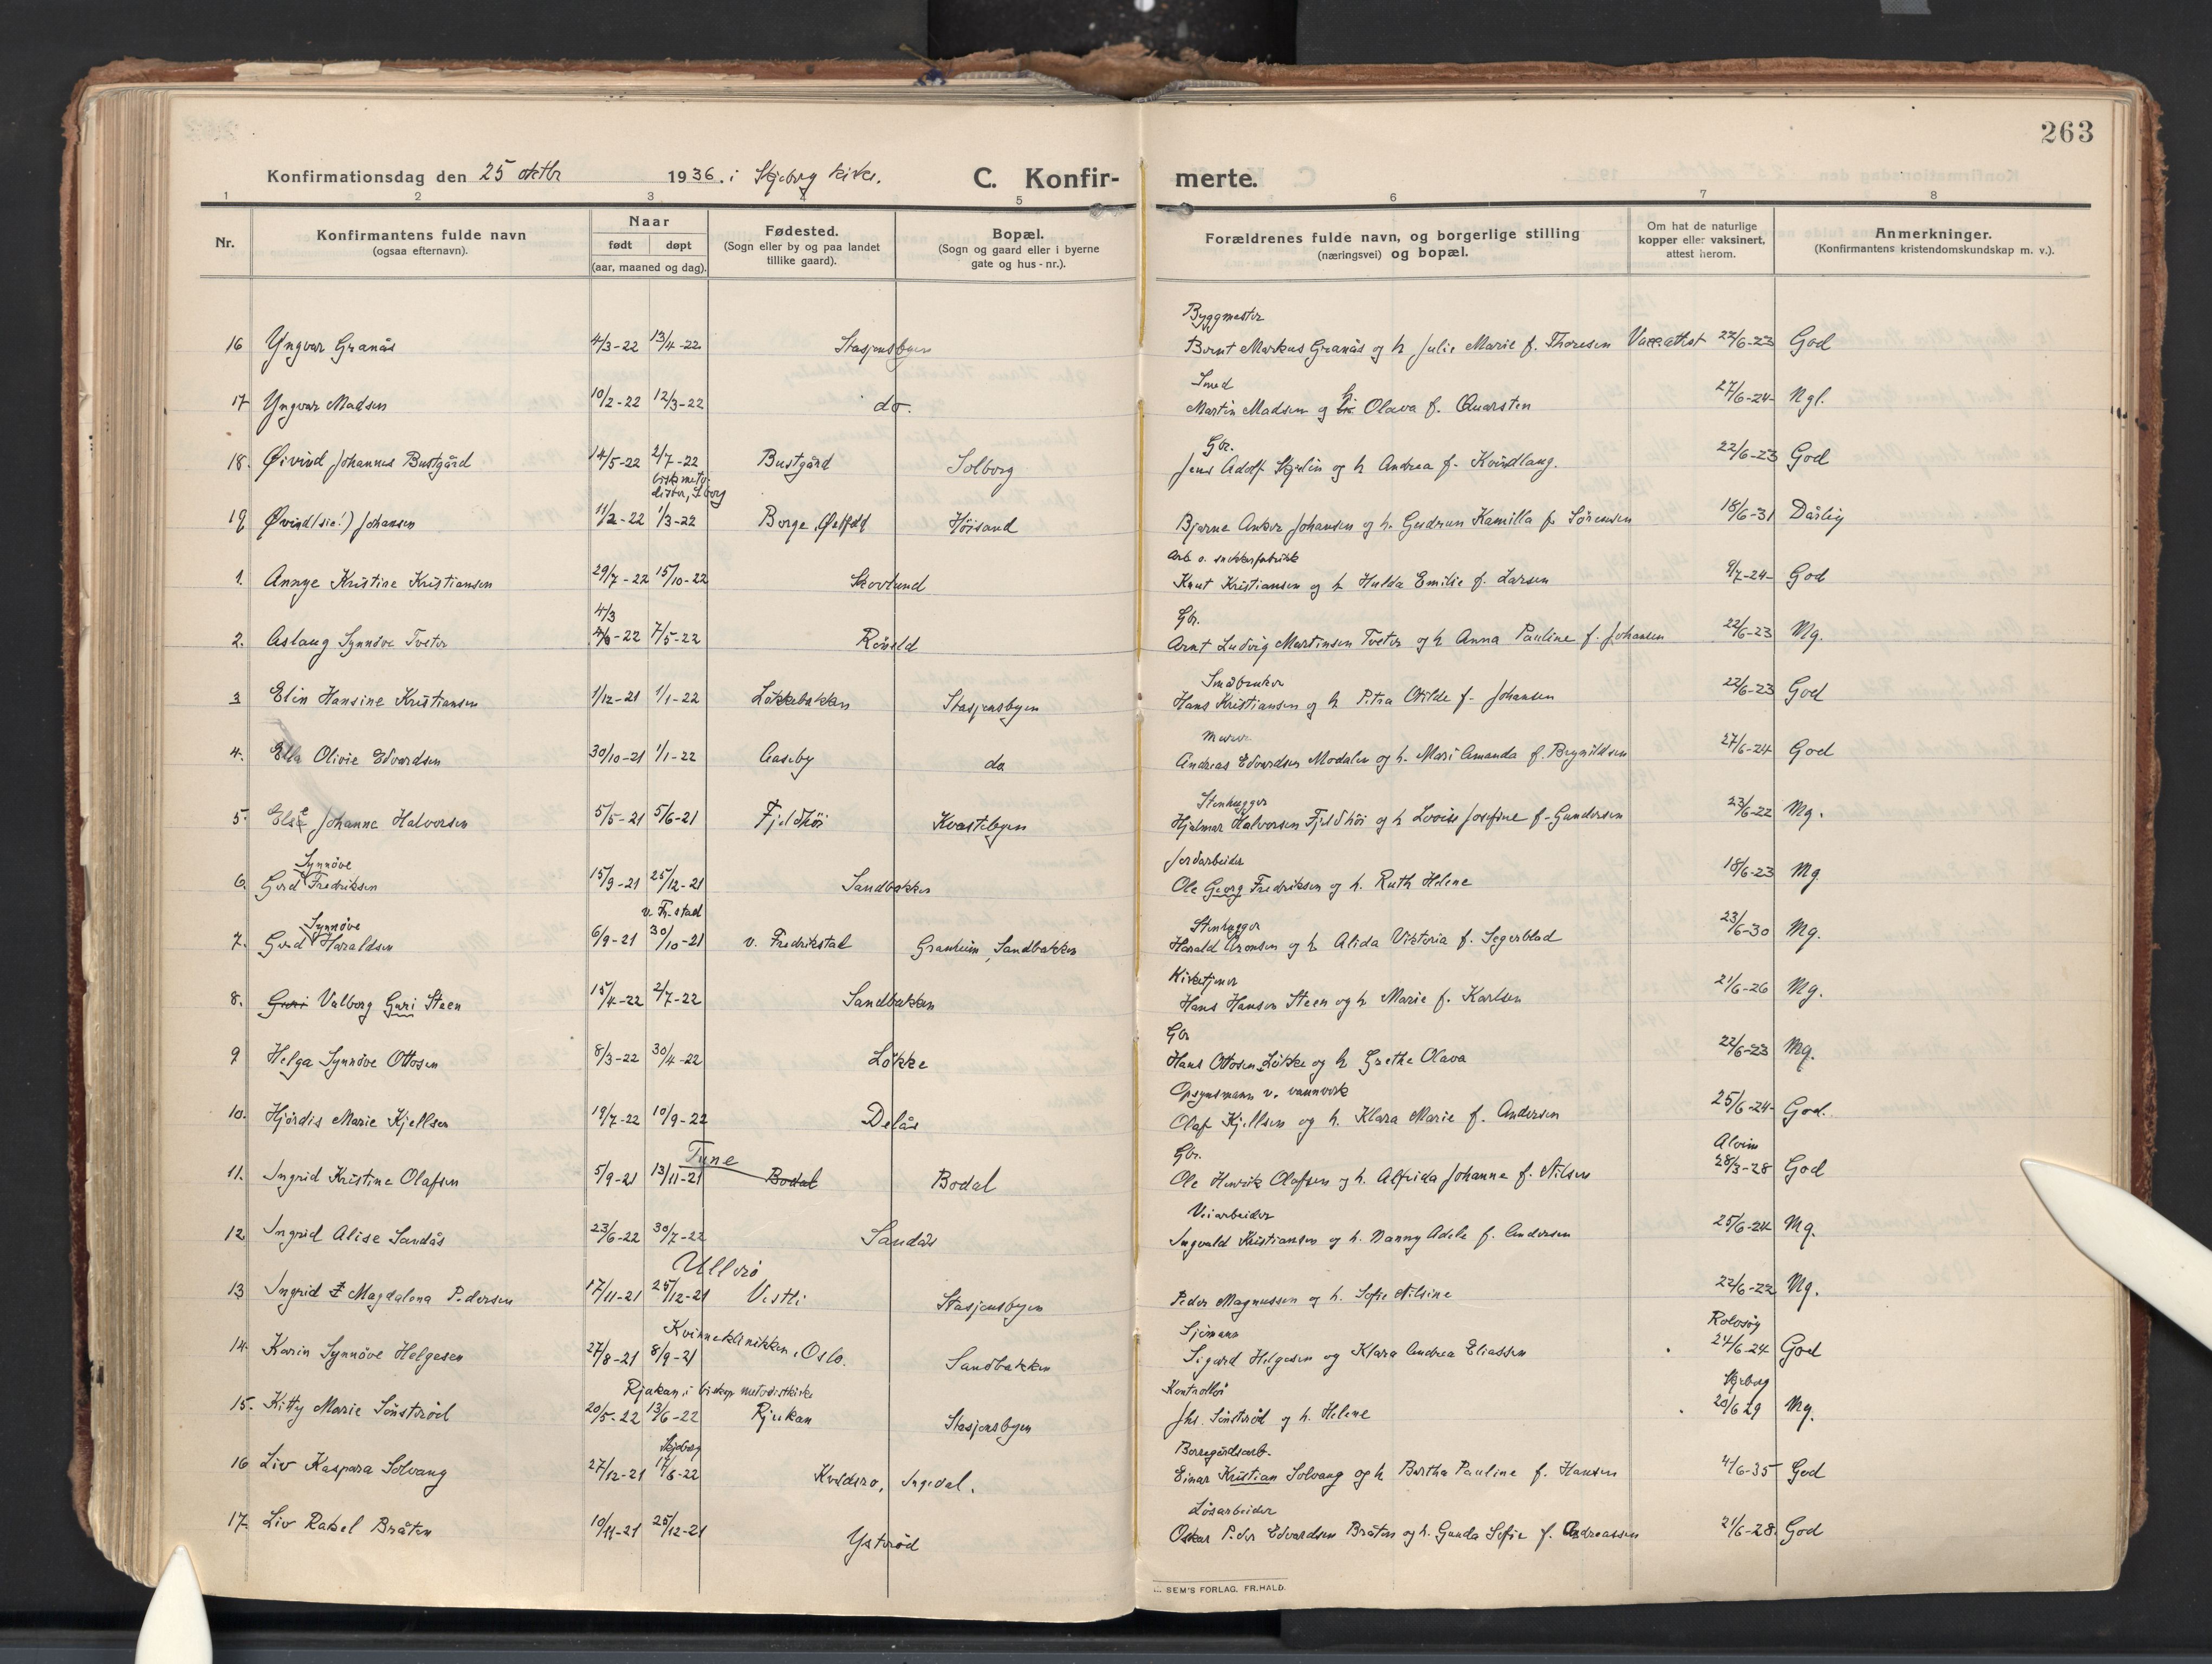 263
Konfirmationsdag den 25 oktbr 1936. i Skjeberg kirke. C. Konfirmerte.
1 2 3 4 5 6 7 8
Nr. Konfirmantens fulde navn (ogsaa efternavn). Naar født døpt (aar, maaned og dag). Fødested. (Sogn eller by og paa landet tillike gaard). Bopæl. (Sogn og gaard eller i byerne gate og hus-nr.). Forældrenes fulde navn, og borgerlige stilling (næringsvei) og bopæl. Om hat de naturlige kopper eller vaksinert, attest herom. Anmerkninger. (Konfirmantens kristendomskundskap m. v.).
Byggmester
16 Yngvar Granås 4/3-22 13/4-22 Stasjonsbyen Bernt Markus Granås og h Julie Marie f. Thoresen Vacc.attest 22/6-23 God
Smed
17 Yngvar Madsen 10/2-22 12/3-22 do. Martin Madsen og h. Olava f. Quarsten 27/6-24 Ngl.
Gbr.
18. Øivind Johannes Bustgård 14/5-22 2/7-22 Bustgård Solborg Jens Adolf Skjelin og h Andrea f. Kvindlaug. 22/6-23 God
bisk. metodister, S.borg
19 Øvind (sic!) Johansen 11/2-22 1/3-22 Borge, Østfold Høisand Bjarne Anker Johansen og h. Gudrun Kamilla f. Sørensen 18/6-31 Dårlig
Arb. o. snekkerfabrikk
1. Annye Kristine Kristiansen 29/7-22 15/10-22 Skovlund Knut Kristiansen og h Hulda Emilie f. Larsen 9/7-24 God
4/3 Gbr.
2. Aslaug Synnöve Tveter 4/3-22 7/5-22 Röneld Arnt Ludvig Martinsen Tveter og h Anna Pauline f. Johansen 22/6-23 Mg.
Småbruker
3 Elin Hansine Kristiansen 1/12-21 1/1-22 Løkkebakken Stasjonsbyen Hans Kristiansen og h Petra Otilde f. Johansen 22/6-23 God
Murer
4. Ella Olivie Edvardsen 30/10-21 1/1-22 Gaseby do Andreas Edvardsen Modalen og h. Mari Amanda f. Brynildsen 27/6-24 God
Stenhugger
5. Else Johanne Halvorsen 5/5-21 5/6-21 Fjeldhöi Kvastebyen Hjalmar Halvorsen Fjeldhöi og h Lovise Josefine f. Gundersen 23/6-22 Mg.
Synnöve Jordarbeider
6. Gerd Fredriksen 15/9-21 25/12-21 Sandbakken Ole Georg Fredriksen og h. Ruth Helene 18/6-23 Mg
Synnöve v. Fr.stad Stenhugger
7. Gerd Haraldsen 6/9-21 30/10-21 v. Fredrikstad Granheim, Sandbakken Harald Aronsen og h Alida Viktoria f. Segerblad 23/6-30 Mg.
Kirketjener
8. Guri Valborg Guri Steen 15/4-22 2/7-22 Sandbakken Hans Hansen Steen og h Marie f. Karlsen 21/6-26 Mg.
Gbr
9 Helga Synnöve Ottosen 8/3-22 30/4-22 Løkke Hans Ottosen Løkke og h Grethe Olava 22/6-23 Mg.
Opsynsmann v. vannverk
10. Hjördis Marie Kjellsen 19/7-22 10/9-22 Delås Olaf Kjellsen og h. Klara Marie f. Andersen 25/6-24 God.
Tune Gbr. Alvim
11. Ingrid Kristine Olafsen 5/9-21 13/11-21 Bodal Bodal Ole Henrik Olafsen og h. Alfrida Johanne f. Nilsen 28/3-28 God
Veiarbeider
12 Ingrid Alise Sandås 23/6-22 30/7-22 Sandås Ingvald Kristiansen og h. Nanny Adele f. Andersen 25/6-24 Mg.
Ullerö
13 Ingrid Magdalena Pedersen 17/11-21 25/12-21 Vestli Stasjonsbyen Peder Magnussen og h. Sofie Nilsine 22/6-22 Mg.
Kvinneklinikken, Oslo. Sjömann Rolvsöy
14. Karin Synnöve Helgesen 27/8-21 8/9-21 Sandbakken Sigurd Helgesen og Klara Andrea Eliassen 24/6-24 God
Rjukan, i biskop. metodistkirke Kontrollör Skjeberg
15. Kitty Marie Sönströd 20/5-22 13/6-22 Rjukan Stasjonsbyen Jhs. Sönströd og h. Helene 20/6 29 Mg.
Skjeberg Borregårdsarb.
16 Liv Kaspara Solvang 27/12-21 17/6-22 Kveldsro, Ingedal. Einar Kristian Solvang og h Bertha Pauline f. Hansen 4/6-35 God
Løsarbeider
17. Liv Rakel Bråten 10/11-21 25/12-21 Ysteröd Oskar Peder Edvardsen Bråten og h. Gunda Sofie f. Andreassen 21/6-28 God
SEM'S FORLAG. FR.HALD.